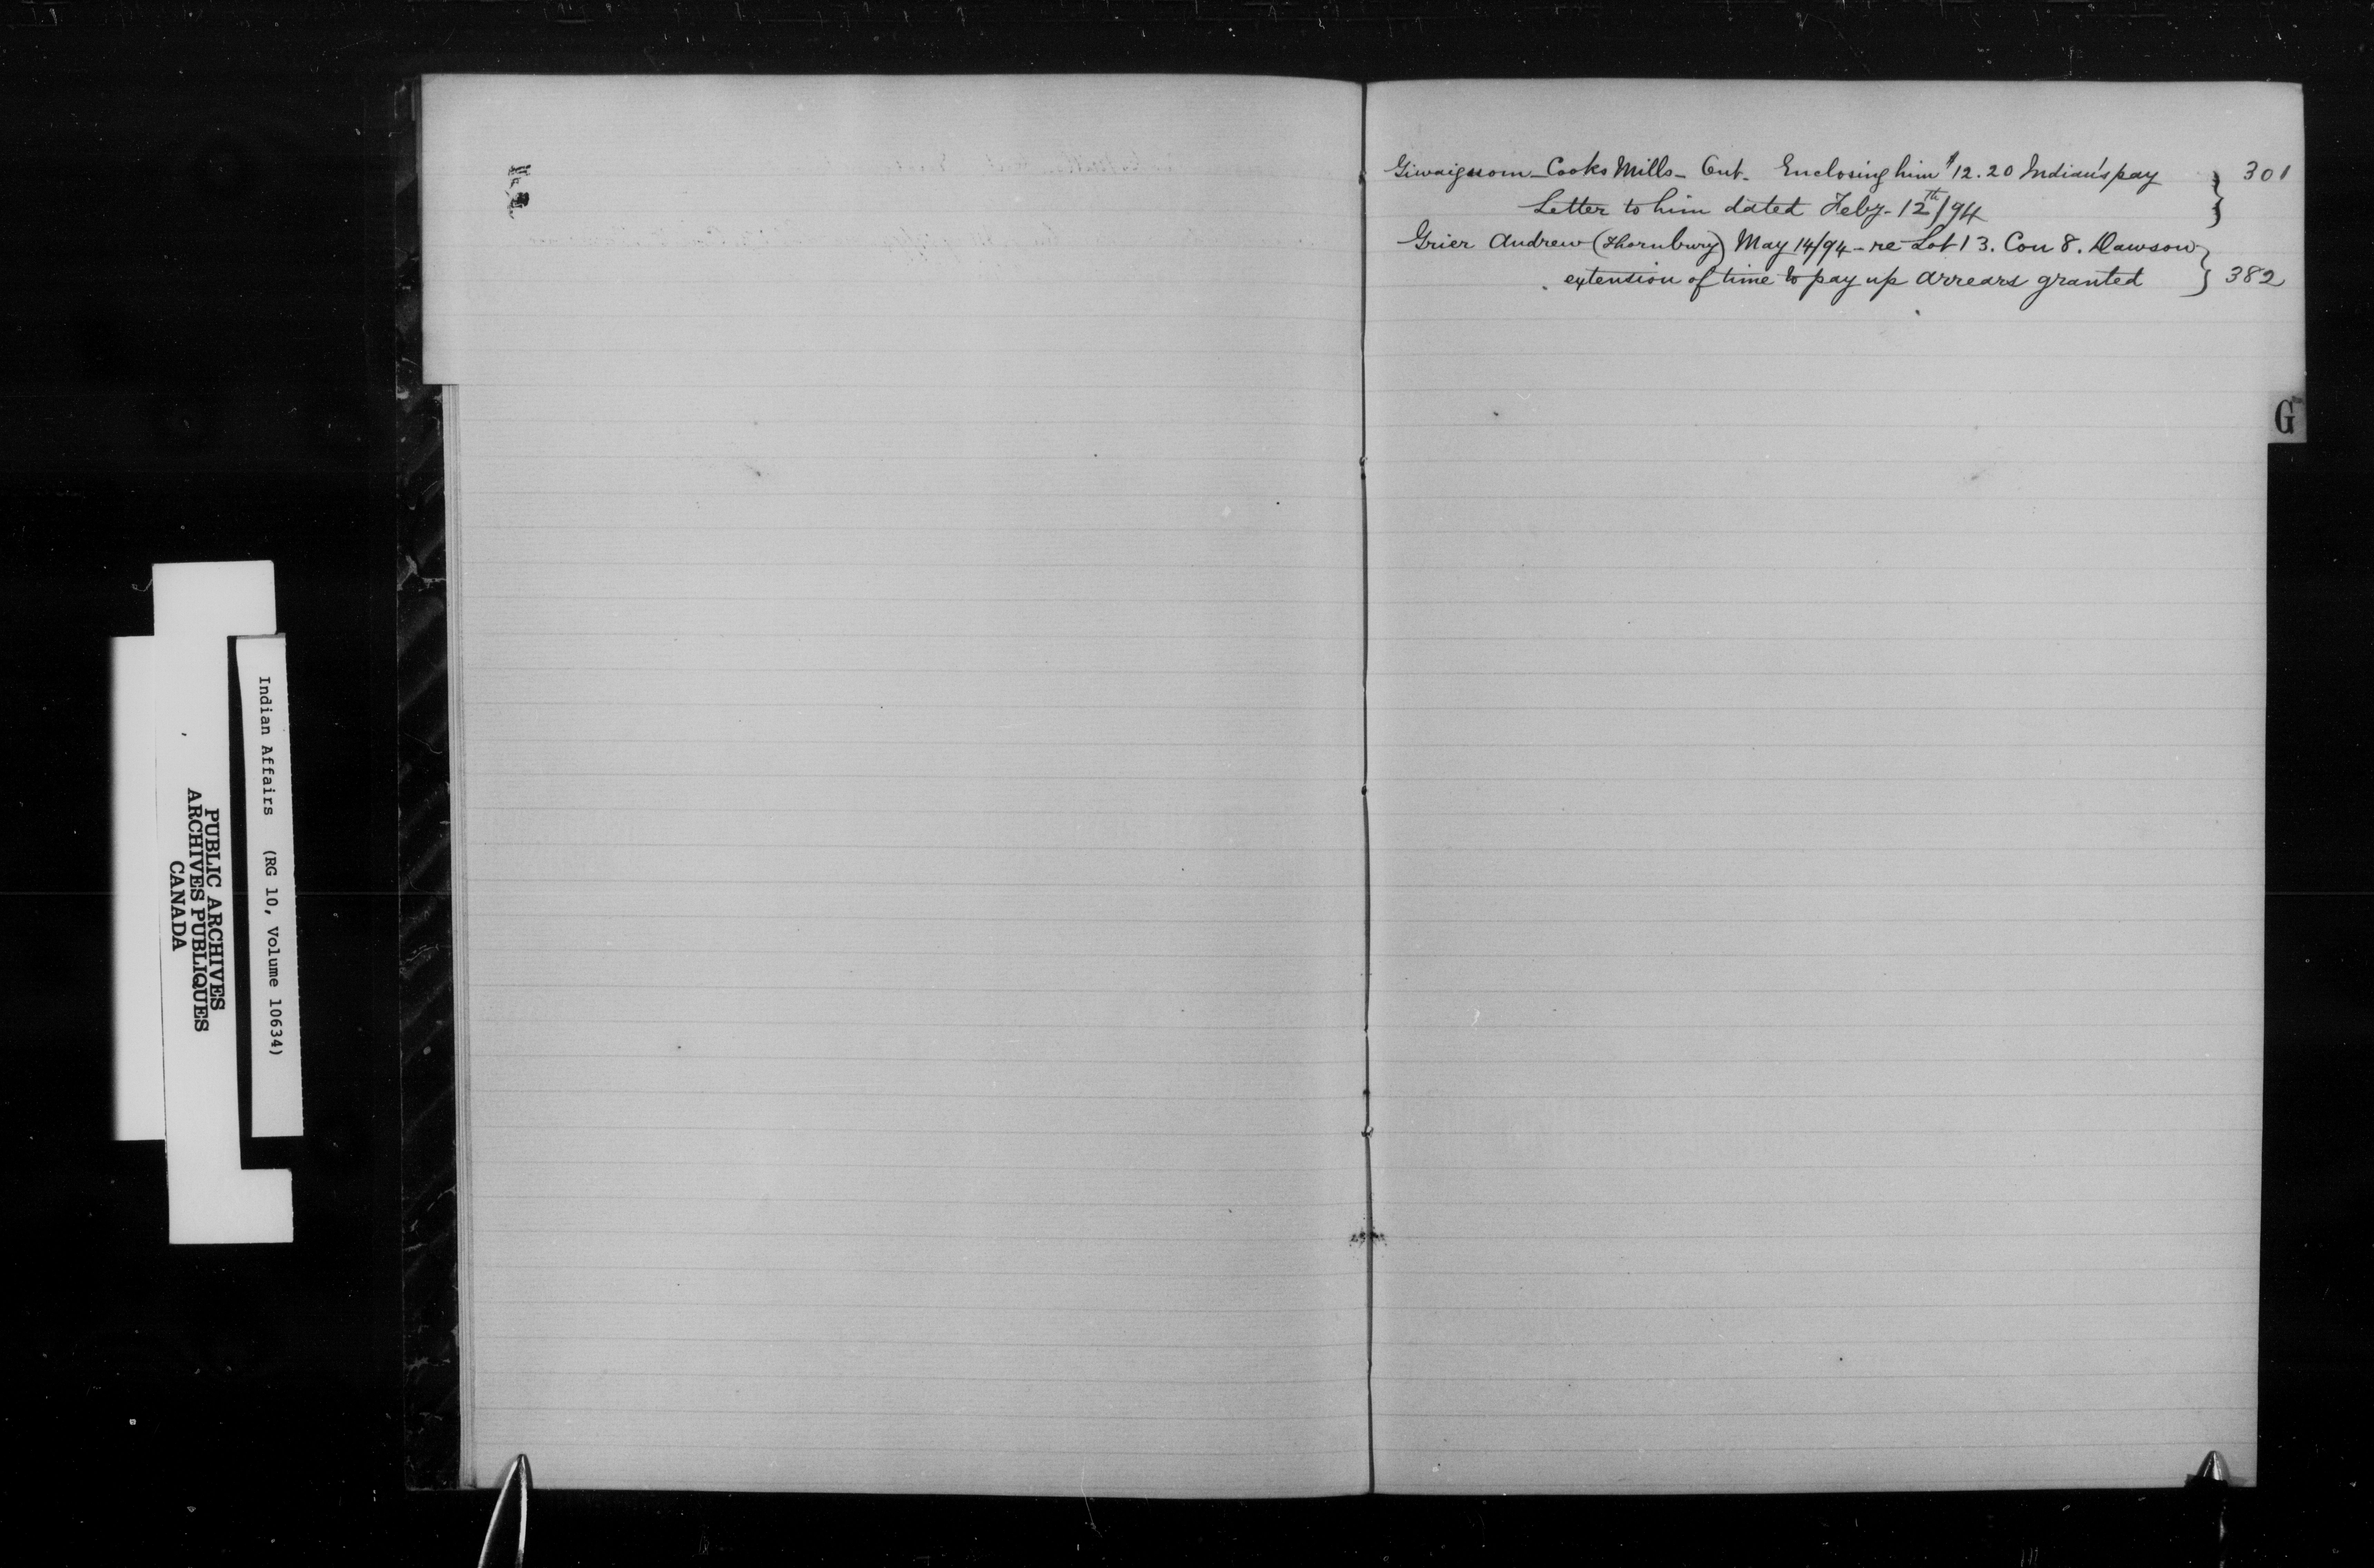 Giwaignom - Cooks Mills - Ont. Enclosing him $12.20 Indian's pay } 301
Letter to him dated Feby. 12th/94
Grier Andrew (Thornbury) May 14/94 - re Lot 13. Con 8. Dawson
extension of time to pay up arrears granted } 382
G
Indian Affairs (RG 10, Volume 10634)
PUBLIC ARCHIVES
ARCHIVES PUBLIQUES
CANADA